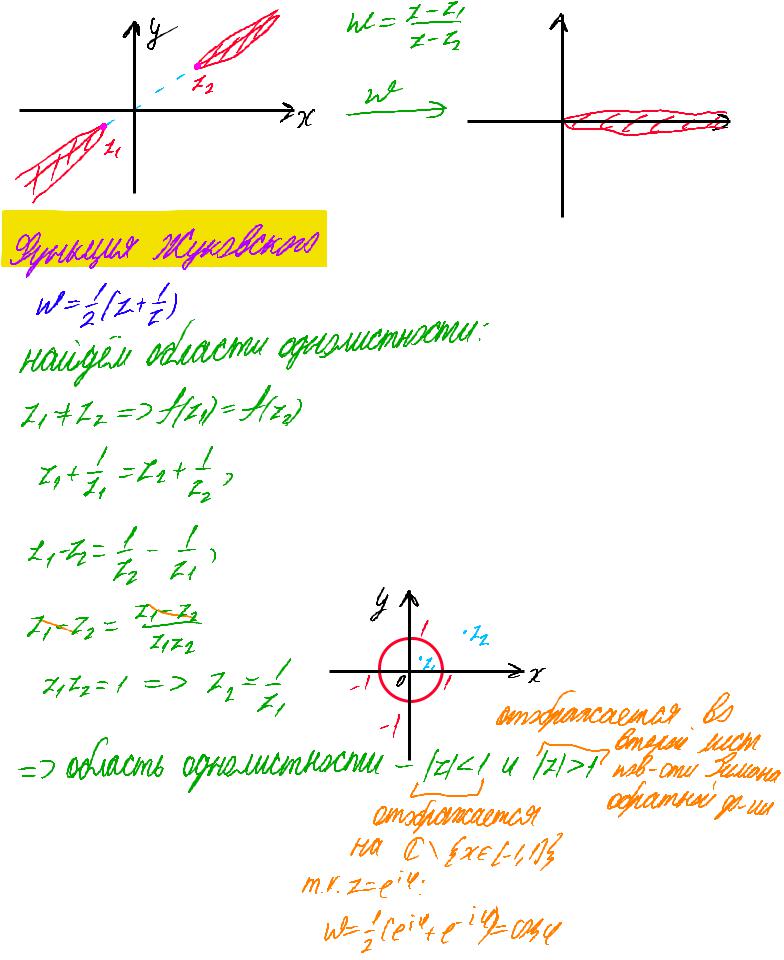 y
z₂
z₁
x
w = (z - z₁)/(z - z₂)
w
Функция Жуковского
w = 1/2 (z + 1/z)
найдём области однолистности:
z₁ ≠ z₂ => f(z₁) = f(z₂)
z₁ + 1/z₁ = z₂ + 1/z₂,
z₁ - z₂ = 1/z₂ - 1/z₁,
z₁ - z₂ = (z₁ - z₂)/(z₁z₂)
z₁z₂ = 1 => z₂ = 1/z₁
y
1
·z₂
·z₁
-1
0
1
x
-1
=> область однолистности - |z|<1 и |z|>1
отображается во
второй лист
пов-сти Римана
обратной ф-ии
отображается
на ℂ \ {x∈[-1,1]}
т.к. z = e^{iφ}:
w = 1/2 (e^{iφ} + e^{-iφ}) = cos φ